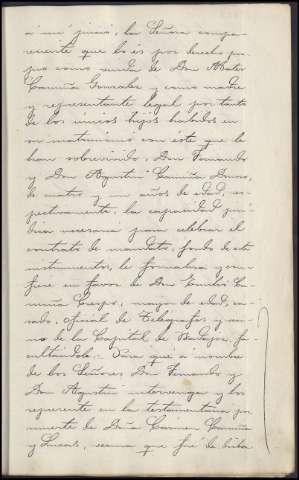 á mi juicio, la Señora compa-
reciente que lo es por derecho pro-
pio como viuda de Don Abater
Camuña Gonzalez y como madre
y representante legal por tanto
de los únicos hijos habidos en
su matrimonio con éste que le
han sobrevivido, Don Fernando
y Don Agustin Camuña Duro,
de cuatro y un años de edad, res-
pectivamente, la capacidad ju-
rídica necesaria para celebrar el
contrato de mandato, fondo de este
instrumento, le formaliza y con-
fiere en favor de Don Emilio Ca-
muña Crespo, mayor de edad, ca-
sado, oficial de Telegrafos y veci-
no de la Capital de Badajoz, fa-
cultándole:- Para que á nombre
de los Señores Don Fernando y
Don Agustin intervenga y los
represente en la testamentaria por
muerte de Doña Carmen Camuña
y Lucas, vecina que fué de